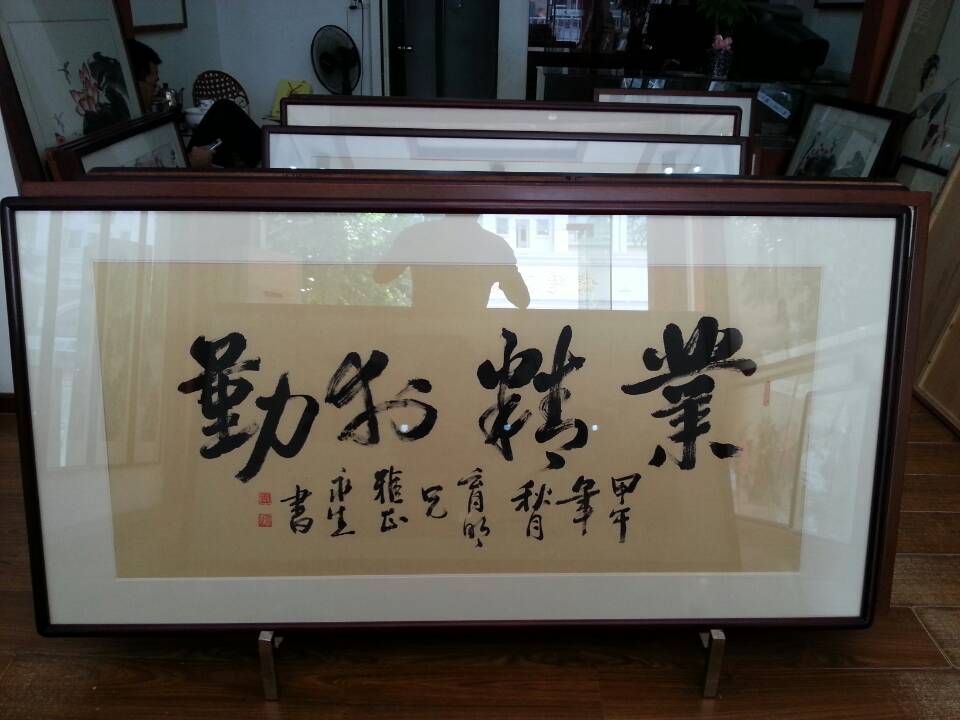 業精於勤
甲午年秋月育明兄雅正永生書